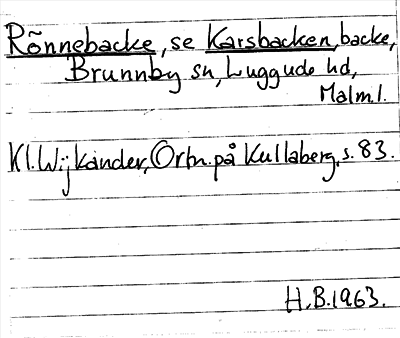 Rönnebacke, se Karsbacken, backe,
Brunnby sn, Luggude hd,
Malm.l.
Kl. Wijkander, Ortn. på Kullaberg, s. 83.
H.B. 1963.